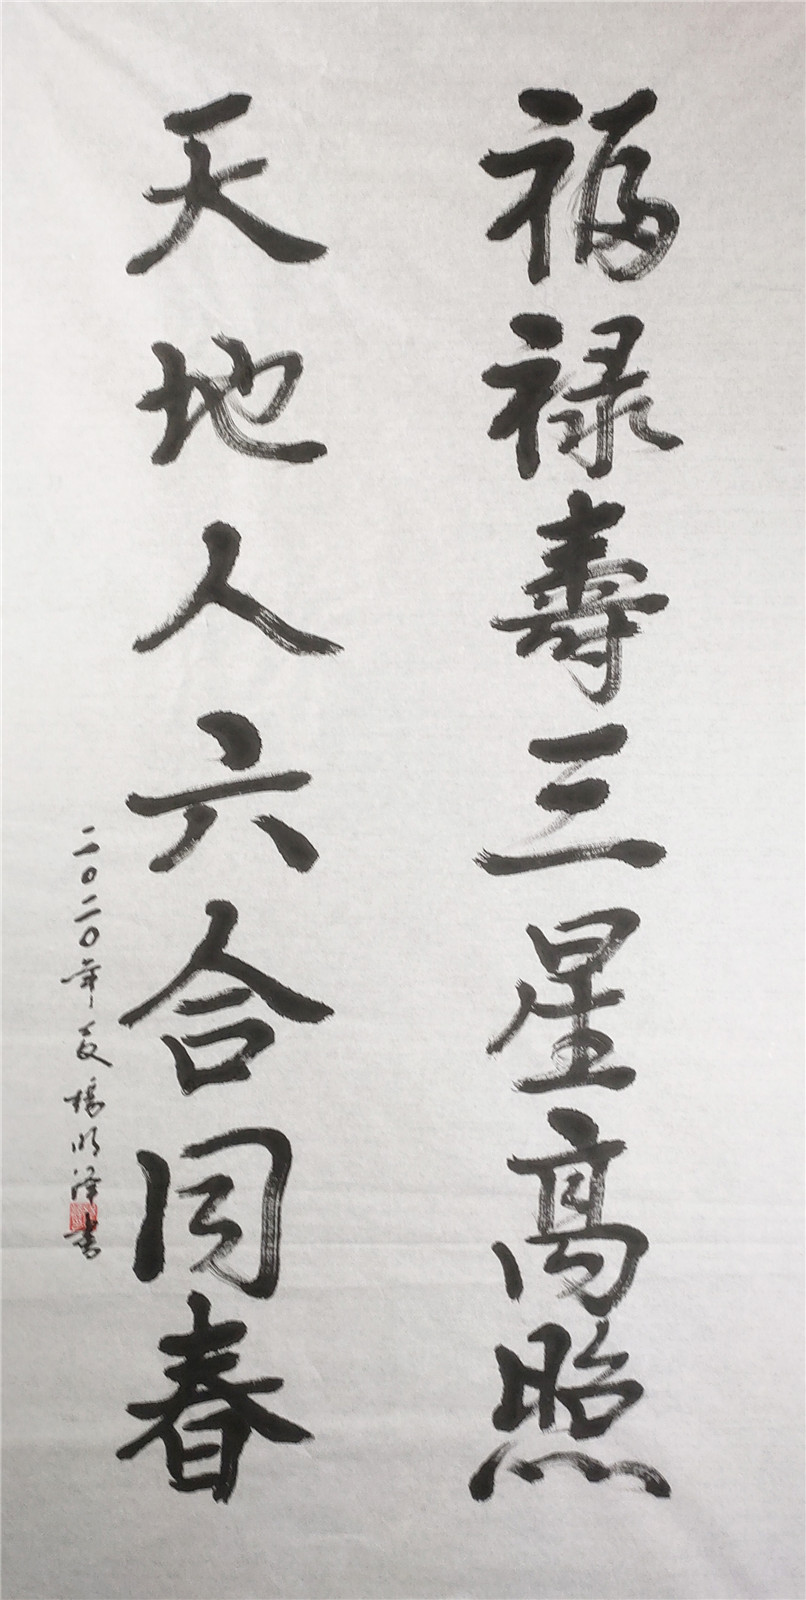 福禄壽三星高照
天地人六合同春
二〇二〇年夏楊明澤書